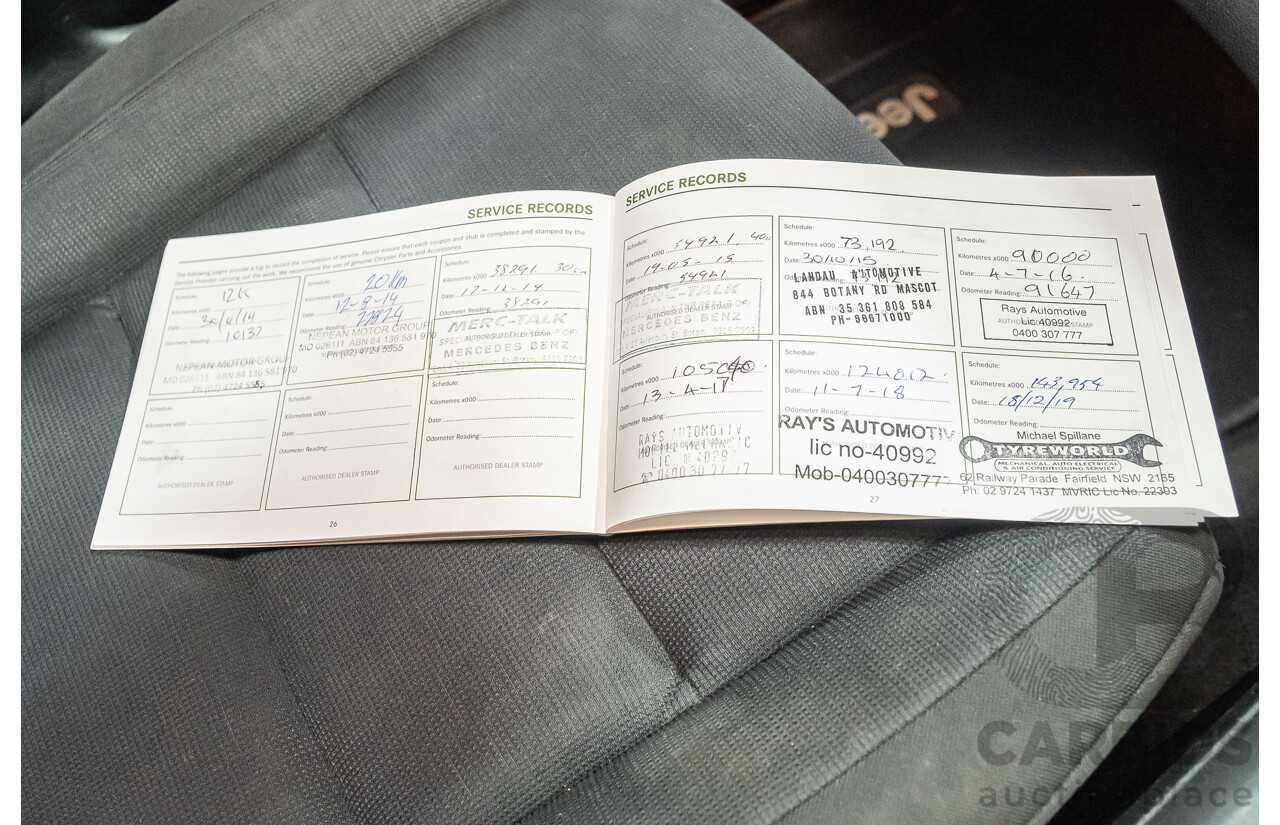 Jeep
SERVICE RECORDS
The following pages provide a log to record the completion of service. Please ensure that each coupon and stub is completed and stamped by the
Service Provider carrying out the work. We recommend the use of genuine Chrysler Parts and Accessories.
Schedule: 12K
Kilometres x000
Date:
Odometer Reading: 10132
NEPEAN MOTOR GROUP
MD 026111 ABN 84 136 581 970
Ph (02) 4724 5555
Schedule: 20Km
Kilometres x000
Date: 12-8-14
Odometer Reading:
NEPEAN MOTOR GROUP
MD 026111 ABN 84 136 581 970
Ph (02) 4724 5555
Schedule:
Kilometres x000 38291 30Km
Date: 17-12-14
Odometer Reading: 38291
AUTHORISED DEALER STAMP
MERC-TALK
MERCEDES BENZ
Schedule:
Kilometres x000
Date:
Odometer Reading:
AUTHORISED DEALER STAMP
Schedule:
Kilometres x000
Date:
Odometer Reading:
AUTHORISED DEALER STAMP
Schedule:
Kilometres x000
Date:
Odometer Reading:
AUTHORISED DEALER STAMP
26
SERVICE RECORDS
Schedule:
Kilometres x000 54921
Date: 19-05-15
Odometer Reading: 54921
AUTHORISED DEALER STAMP
MERC-TALK
MERCEDES BENZ
Schedule:
Kilometres x000 73,192
Date: 30/10/15
LANDAU AUTOMOTIVE
844 BOTANY RD MASCOT
ABN 35 361 808 584
PH-96671000
Schedule:
Kilometres x000 90000
Date: 4-7-16
Odometer Reading: 91647
Rays Automotive
Lic 40992
0400 307 777
Kilometres x000 105000
Date: 13-4-17
Odometer Reading:
RAYS AUTOMOTIV
MOBILE MECHANIC
LIC 40992
0400 30 77 77
Schedule:
Kilometres x000 124012
Date: 11-7-18
Odometer Reading:
RAY'S AUTOMOTIV
lic no-40992
Mob-0400307777
Schedule:
Kilometres x000 143,954
Date: 18/12/19
Odometer Reading:
Michael Spillane
TYREWORLD
MECHANICAL, AUTO ELECTRICAL
& AIR CONDITIONING SERVICE
62 Railway Parade Fairfield NSW 2165
Ph: 02 9724 1437 MVRIC Lic No. 22303
27